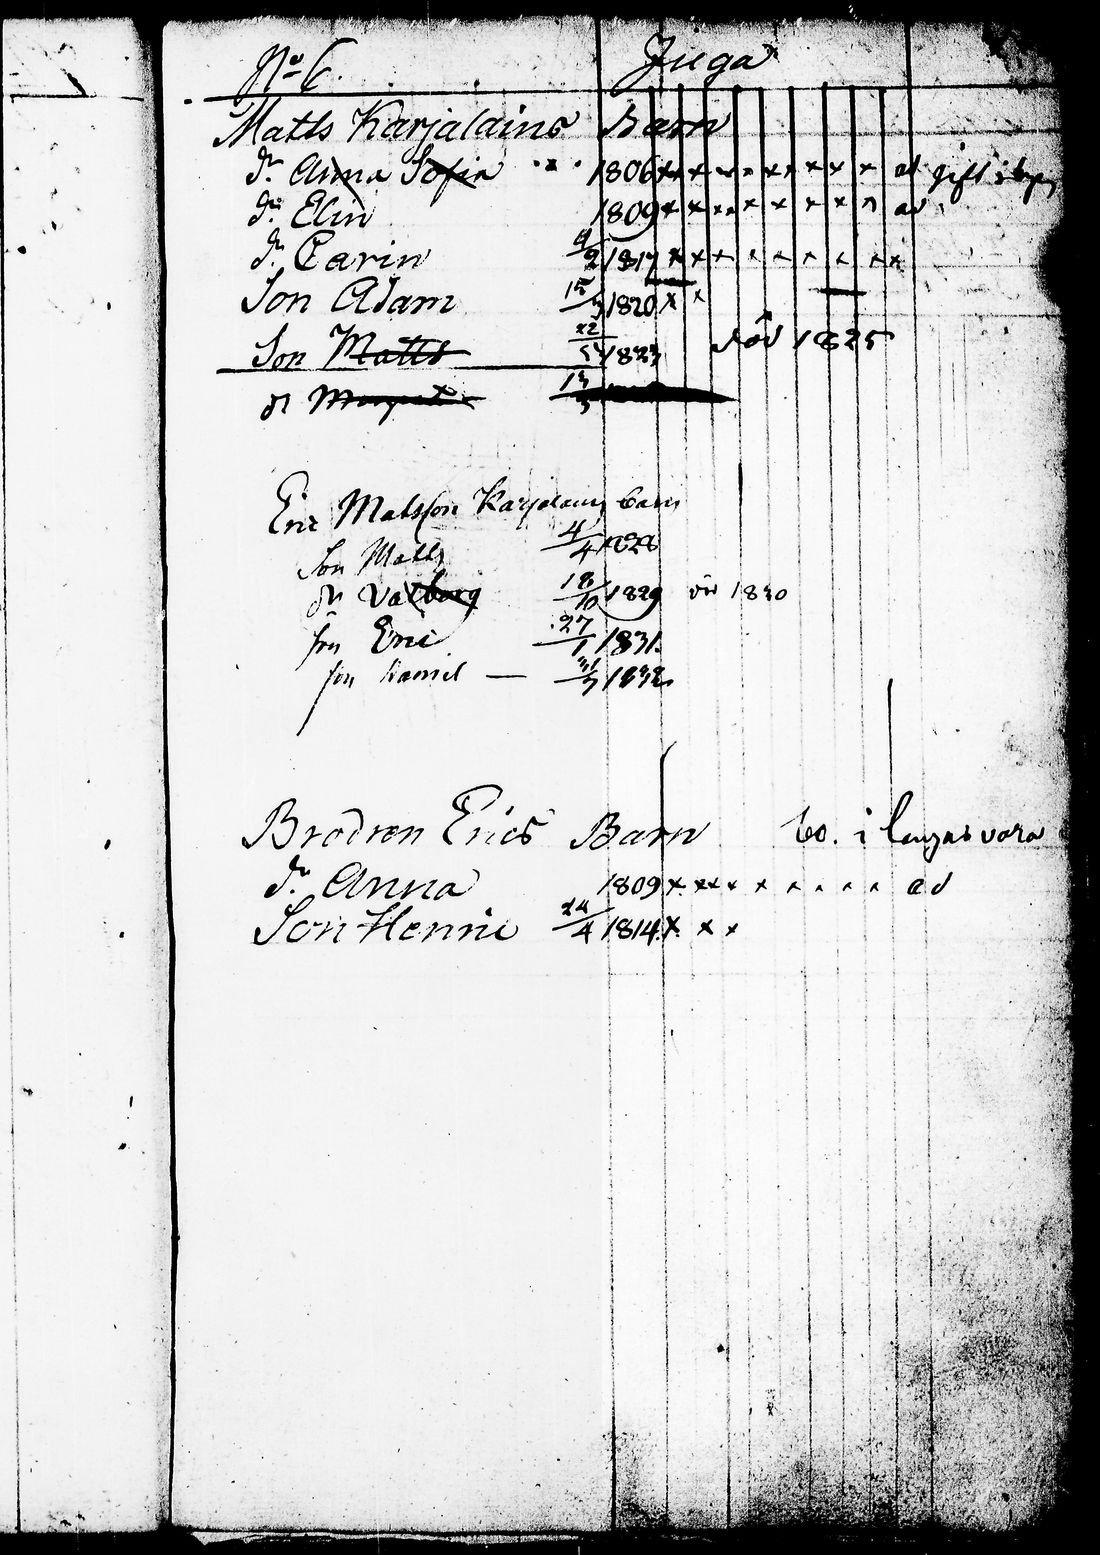 No 6. Juga
Matts Karjalains Barn
dr. Anna Sofia 1806 x x x x x x x x x ad gift i
dr. Elin 1809 x x x x x x x x ad
dr. Carin 9/2 1817 x x x x x x x x x
Son Adam 15/3 1820 x x
Son Matts 22/5 1823 död 1825
dr 13/3
Eric Matsson Karjalains barn
Son Matts 4/4 1828
dr Valborg 18/10 1829 död 1830
son Eric 27/1 1831.
son Daniel — 31/7 1832
Brodren Erics Barn bo. i
dr. Anna 1809 x x x x x x x x x ad
Son Henric 24/4 1814 x x x